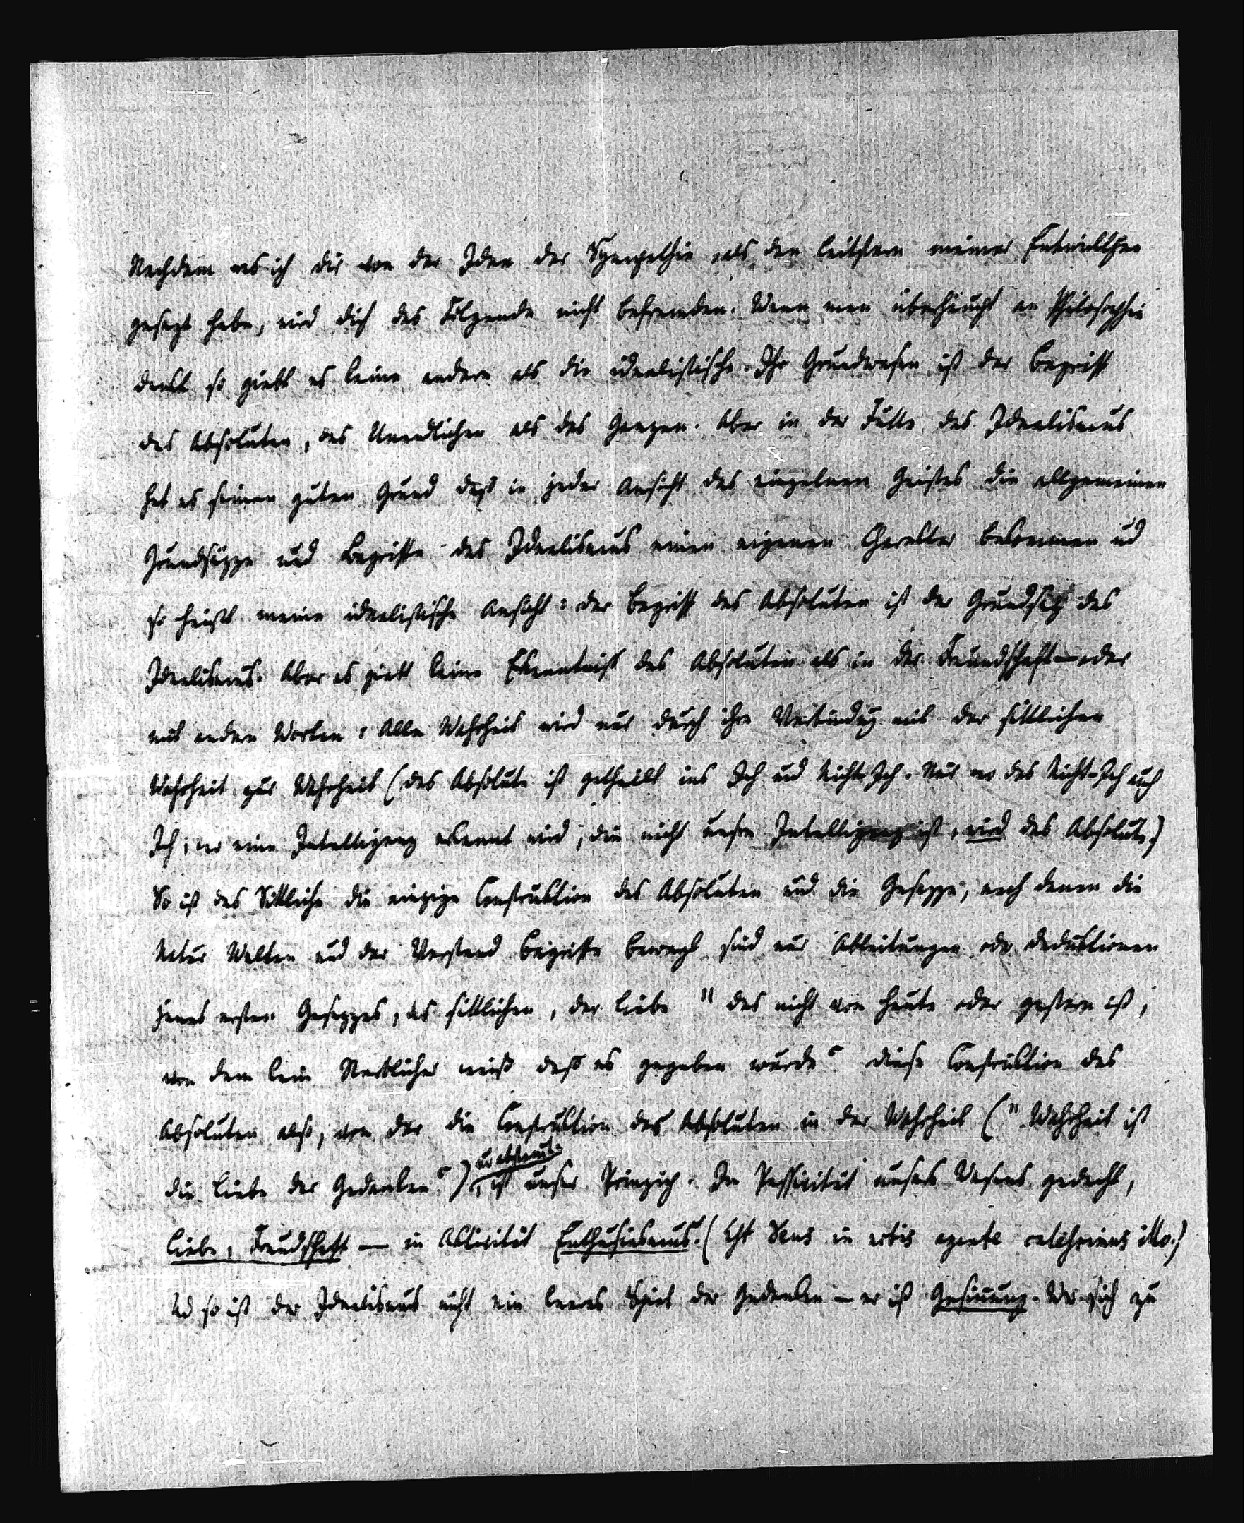 Nachdem was ich dir von der Idee der Sympathie, als den Leitstern meines
gesagt habe, wird dich das Folgende nicht befremden. Wenn man überhaupt an Philosophie
denkt so giebt es keine andere als die idealistische. Ihr Grundwesen ist der Begriff
des Absoluten, des Unendlichen als des Ganzen. Aber in der Fülle des Idealismus
hat es seinen guten Grund daß in jeder Ansicht des einzelnen Geistes die allgemeinen
Grundsäzze und Begriffe des Idealismus einen eigenen Charakter bekommen ud
so heißt meine idealistische Ansicht: der Begriff des Absoluten ist der Grundsatz des
Idealismus. Aber es giebt keine Erkenntniß des Absoluten als in der Freundschaft — oder
mit andern Worten: Alle Wahrheit wird nur durch ihre Verbindung mit der sittlichen
Wahrheit zur Wahrheit (das Absolute ist getheilt ins Ich und Nicht-Ich. Nur wo das Nicht-Ich auch
Ich, wo eine Intelligenz erkannt wird, die nicht unsre Intelligenz ist, wird das Absolute)
So ist das Sittliche die einzige Construktion des Absoluten und die Gesezze, nach denen die
Natur Welten und der Verstand Begriffe bewegt sind nur Ableitungen oder Deduktionen
jenes ersten Gesezzes, des sittlichen, der Liebe "das nicht von heute oder gestern ist,
von dem kein Sterblicher weiß daß es gegeben wurde" diese Construktion des
Absoluten also, von der die Construktion des Absoluten in der Wahrheit ("Wahrheit ist
die Liebe der Gedanken") , ist unser Prinzip. In Passivität unsers Wesens gedacht,
Liebe, Freundschaft — in Aktivität Enthusiasmus. (Est Deus in nobis agente calescimus illo.)
Ud so ist der Idealismus nicht ein leeres Spiel der Gedanken — er ist Gesinnung. Wer sich zu